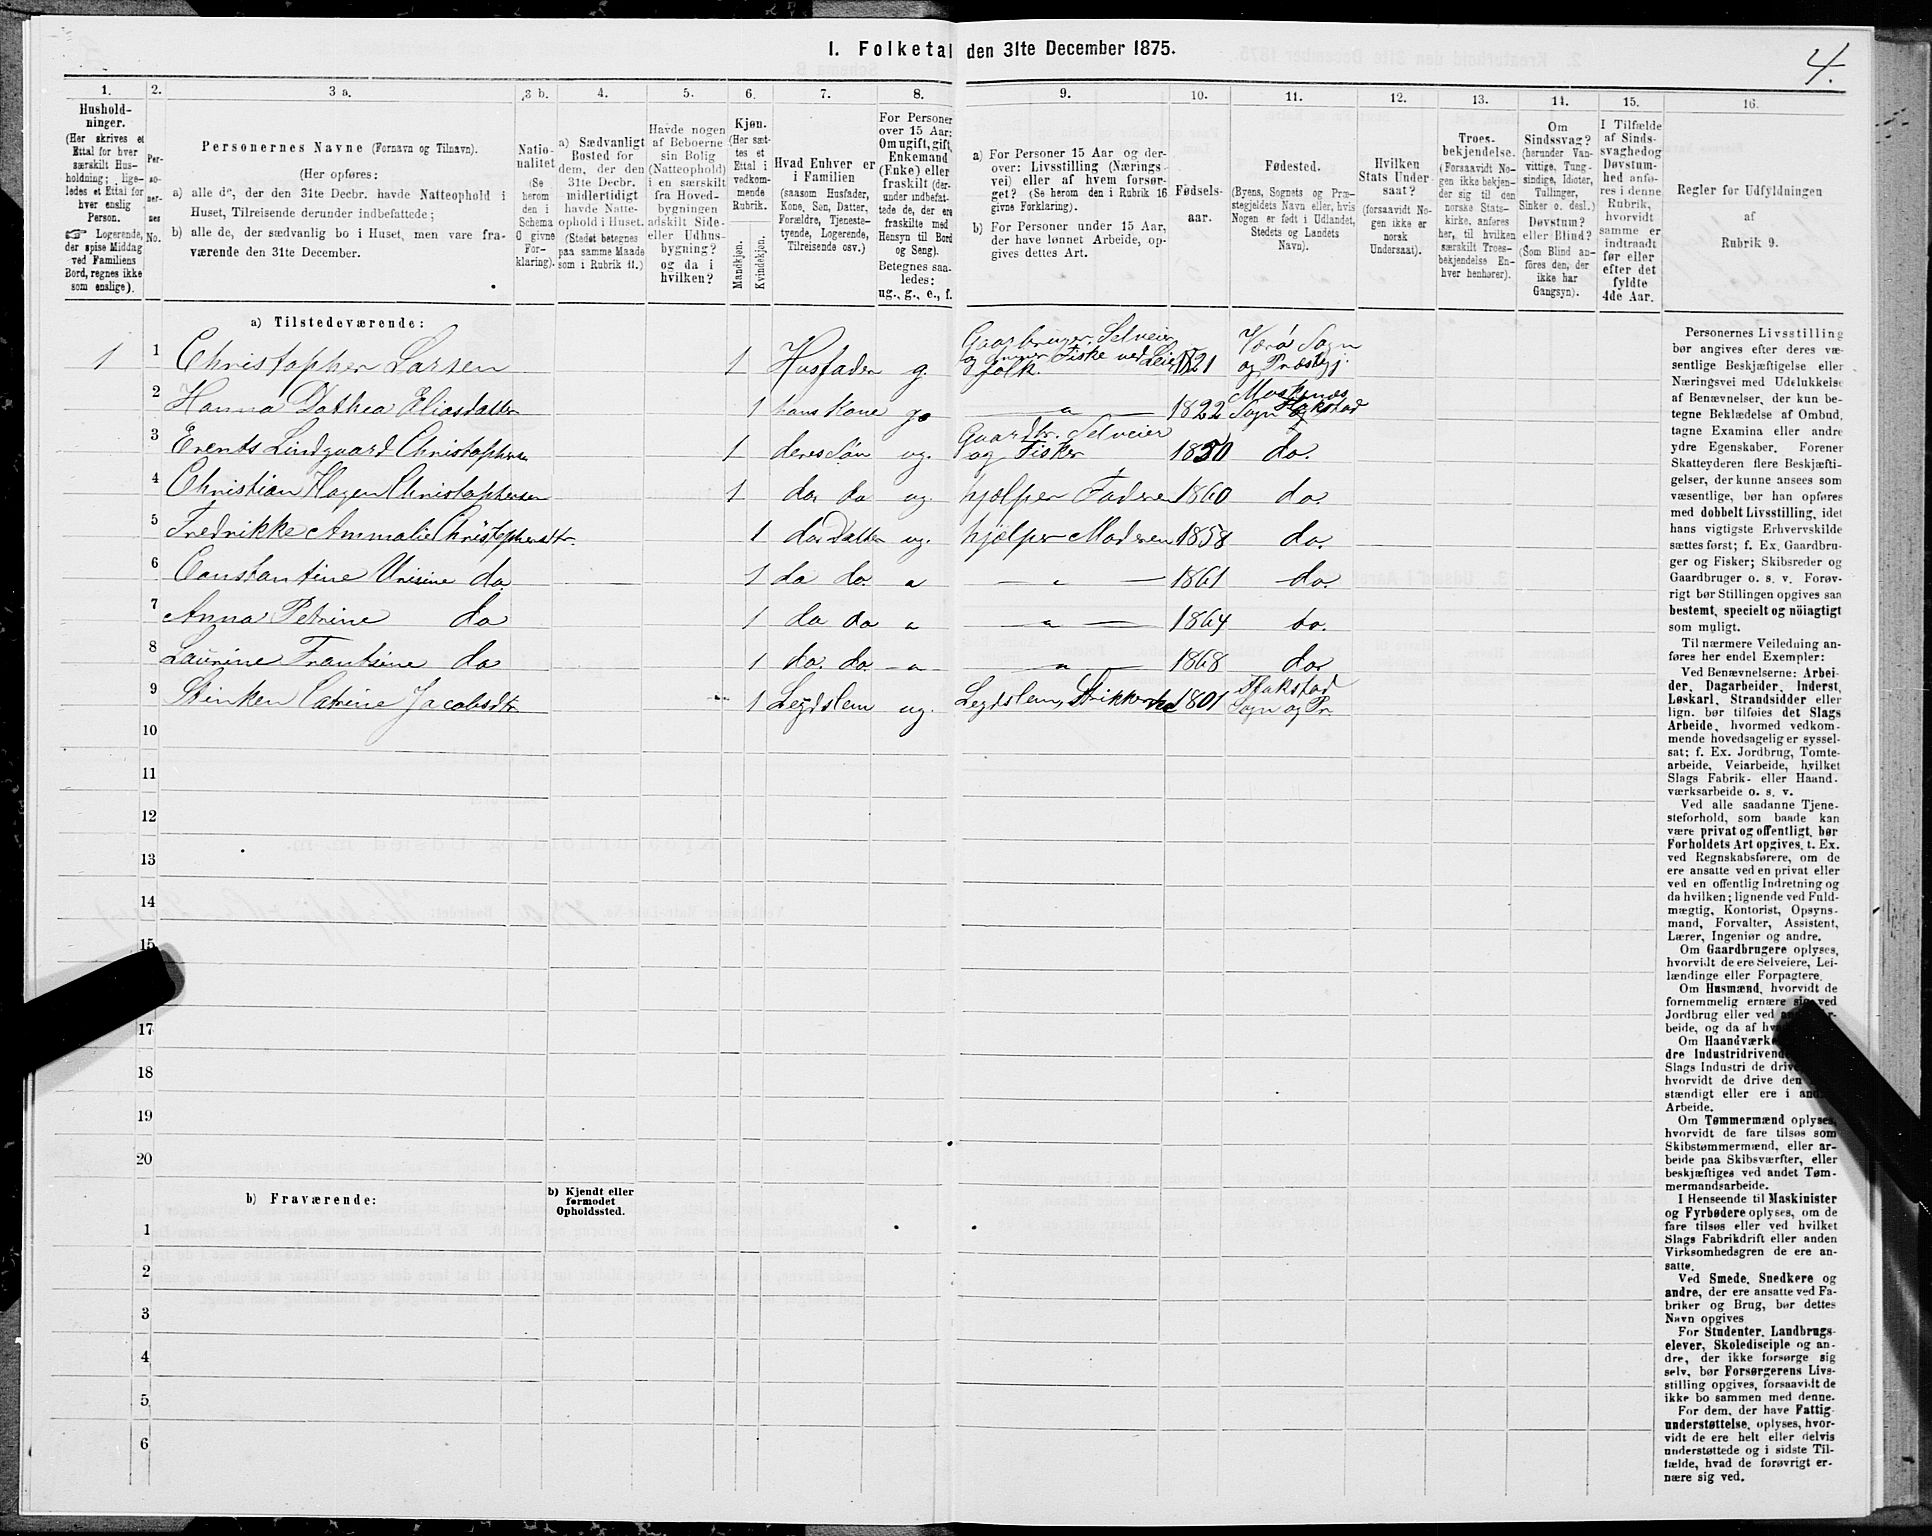 I. Folketal den 31te December 1875.
4.
1.
Hushold-
ninger.
(Her skrives et
Ettal for hver
særskilt Hus-
holdning; lige-
ledes et Ettal for
hver enslig
Person.
☞ Logerende,
der spise Middag
ved Familiens
Bord, regnes ikke
som enslige).
2.
Per-
so-
ner-
nes
No.
3 a.
Personernes Navne (Fornavn og Tilnavn).
(Her opføres:
a) alle de, der den 31te Decbr. havde Natteophold i
Huset, Tilreisende derunder indbefattede;
b) alle de, der sædvanlig bo i Huset, men vare fra-
værende den 31te December.
3 b.
Natio-
nalitet
(Se
herom
den i
Schema
O givne
For-
klaring).
4.
a) Sædvanligt
Bosted for
dem, der den
31te Decbr.
midlertidigt
havde Natte-
ophold i Huset.
(Stedet betegnes
paa samme Maade
som i Rubrik 11.)
5.
Havde nogen
af Beboerne
sin Bolig
(Natteophold)
i en særskilt
fra Hoved-
bygningen
adskilt Side-
eller Udhus-
bygning?
og da i
hvilken?
6.
Kjøn.
(Her sæt-
tes et
Ettal i
vedkom-
mende
Rubrik.
Mandkjøn.
Kvindekjøn.
7.
Hvad Enhver er
i Familien
(saasom Husfader,
Kone, Søn, Datter,
Forældre, Tjeneste-
tyende, Logerende,
Tilreisende osv.)
8.
For Personer
over 15 Aar:
Om ugift, gift,
Enkemand
(Enke) eller
fraskilt (der-
under indbefat-
tede de, der ere
fraskilte med
Hensyn til Bord
og Seng).
Betegnes saa-
ledes:
ug., g., e., f.
9.
a) For Personer 15 Aar og der-
over: Livsstilling (Nærings-
vei) eller af hvem forsør-
get? (Se herom den i Rubrik 16
givne Forklaring).
b) For Personer under 15 Aar,
der have lønnet Arbeide, op-
gives dettes Art.
10.
Fødsels-
aar.
11.
Fødested.
(Byens, Sognets og Præ-
stegjeldets Navn eller, hvis
Nogen er født i Udlandet,
Stedets og Landets
Navn).
12.
Hvilken
Stats Under-
saat?
(forsaavidt No-
gen ikke er
norsk
Undersaat).
13.
Troes-
bekjendelse.
(Forsaavidt No-
gen ikke bekjen-
der sig til den
norske Stats-
kirke, anføres
her, til hvilken
særskilt Troes-
bekjendelse En-
hver henhører).
14.
Om
Sindssvag?
(herunder Van-
vittige, Tung-
sindige, Idioter,
Tullinger,
Sinker o. desl.)
Døvstum?
eller Blind?
(Som Blind an-
føres den, der
ikke har
Gangsyn).
15.
I Tilfælde
af Sinds-
svaghed og
Døvstum-
hed anfø-
res i denne
Rubrik,
hvorvidt
samme er
indtraadt
før eller
efter det
fyldte
4de Aar.
16.
Regler for Udfyldningen
af
Rubrik 9.
a) Tilstedeværende:
1 1 Christopher Larsen 1 Husfader g. Gaarbruger, Selveier og Fiske ved Leie folk. 1821 Værø Sogn og Præstegj.
2 Hanna Dathea Eliasdatter 1 hans Kone g. — " — 1822 Moskenæs Sogn Flakstad
3 Erents Lindgaard Christophersen 1 deres Søn ug. Gaardbr. Selveier og Fisker 1850 do.
4 Christian Hagen Christophersen 1 do. do ug. hjælper Faderen 1860 do.
5 Fredrikke Ammalie Christophersdtr. 1 do. datter ug. hjælper Moderen 1858 do.
6 Constantine Unisine do. 1 do do. " — " — 1861 do.
7 Anna Petrine do 1 do do " — " — 1864 do.
8 Laurine Frantine do 1 do. do. — " — — " — 1868 do.
9 Stinken Catrine Jacobsdtr. 1 Legdslem ug. Legdslem, Strikker 1801 Flakstad Sogn og Pr.
10
11
12
13
14
15
17
18
19
20
b) Fraværende:
b) Kjendt eller
formodet
Opholdssted.
1
2
3
4
5
6
Personernes Livsstilling
bør angives efter deres væ-
sentlige Beskjæftigelse eller
Næringsvei med Udelukkelse
af Benævnelser, der kun be-
tegne Beklædelse af Ombud,
tagne Examina eller andre
ydre Egenskaber. Forener
Skatteyderen flere Beskjæfti-
gelser, der kunne ansees som
væsentlige, bør han opføres
med dobbelt Livsstilling, idet
hans vigtigste Erhvervskilde
sættes først; f. Ex. Gaardbru-
ger og Fisker; Skibsreder og
Gaardbruger o. s. v. Forøv-
rigt bør Stillingen opgives saa
bestemt, specielt og nöiagtigt
som muligt.
Til nærmere Veiledning an-
føres her endel Exempler:
Ved Benævnelserne: Arbei-
der, Dagarbeider, Inderst,
Løskarl, Strandsidder eller
lign. bør tilføies det Slags
Arbeide, hvormed vedkom-
mende hovedsagelig er syssel-
sat; f. Ex. Jordbrug, Tomte-
arbeide, Veiarbeide, hvilket
Slags Fabrik- eller Haand-
værksarbeide o. s. v.
Ved alle saadanne Tjene-
steforhold, som baade kan
være privat og offentligt, bør
Forholdets Art opgives, t. Ex.
ved Regnskabsførere, om de
ere ansatte ved en privat eller
ved en offentlig Indretning og
da hvilken; lignende ved Fuld-
mægtig, Kontorist, Opsyns-
mand, Forvalter, Assistent,
Lærer, Ingeniør og andre.
Om Gaardbrugere oplyses,
hvorvidt de ere Selveiere, Lei-
lændinge eller Forpagtere.
Om Husmænd, hvorvidt de
fornemmelig ernære sig ved
Jordbrug eller ved
beide, og da af
Om Haandværke
dre Industridrivende
Slags Industri de
hvorvidt de drive den
stændigt eller ere i
Arbeide.
Om Tømmermænd oplyses,
hvorvidt de fare tilsøs som
Skibstømmermænd, eller ar-
beide paa Skibsværfter, eller
beskjæftiges ved andet Tøm-
mermandsarbeide.
I Henseende til Maskinister
og Fyrbødere oplyses, om de
fare tilsøs eller ved hvilket
Slags Fabrikdrift eller anden
Virksomhedsgren de ere an-
satte.
Ved Smede, Snedkere og
andre, der ere ansatte ved Fa-
briker og Brug, bør dettes
Navn opgives
For Studenter, Landbrugs-
elever, Skoledisciple og an-
dre, der ikke forsørge sig
selv, bør Forsørgerens Livs-
stilling opgives, forsaavidt de
ikke bo sammen med denne.
For dem, der have Fattig-
understøttelse, oplyses, hvor-
vidt de ere helt eller delvis
understøttede og i sidste Til-
fælde, hvad de forøvrigt er-
nære sig ved.